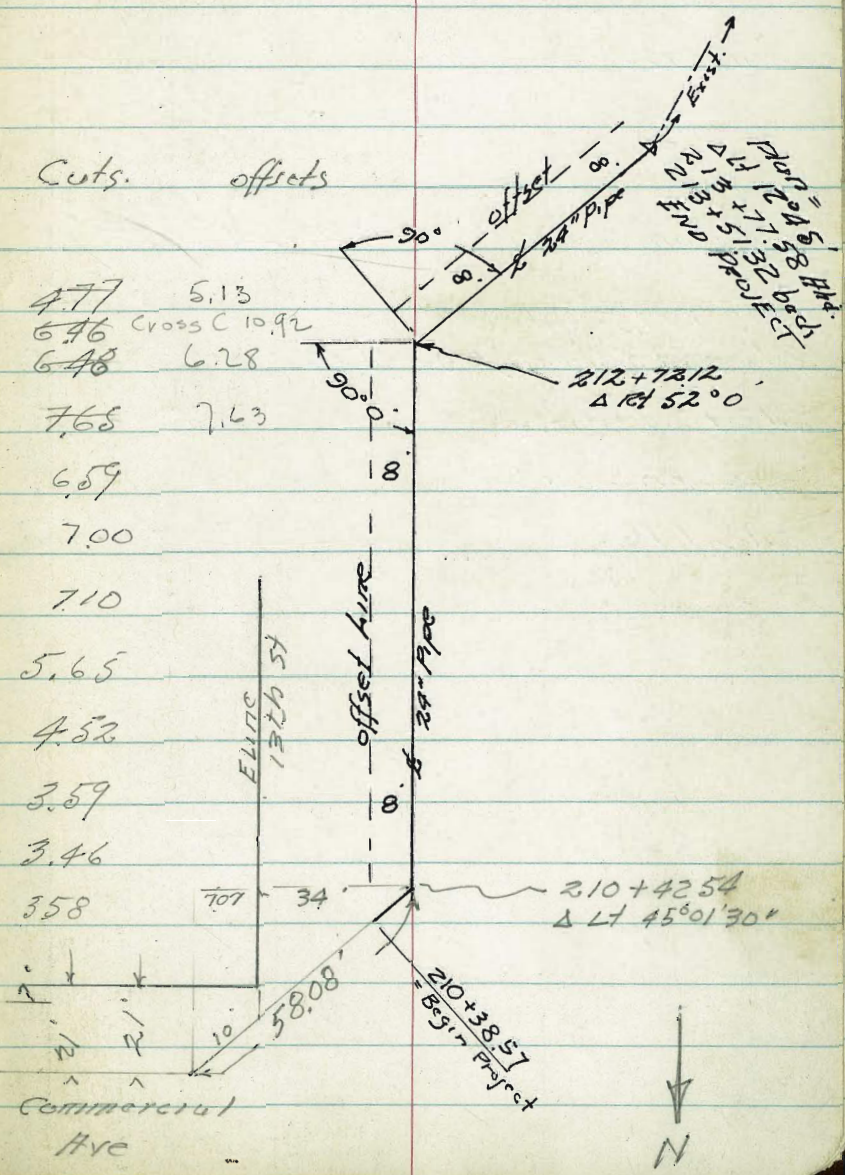 Cuts. offsets
4.77 5.13
6.46 Cross C 10.92
6.48 6.28
7.65 7.63
6.59
7.00
7.10
5.65
4.52
3.59
3.46
3.58
Exist.
offset
8'
90°
8'
24" Pipe
Δ Lt 12°
213+77.58 Ahd.
213+51.32 back
END PROJECT
212+72.12
Δ Rt 52°0'
90°0'
8'
Offset Line
24" Pipe
E Line
13th St
8'
707 34
210+42.54
Δ Lt 45°01'30"
58.08'
10'
210+38.57
= Begin Project
21' 21'
Commercial
Ave
N